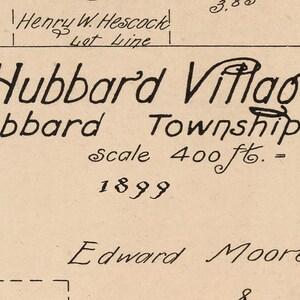 3.85
Henry W. Hescock
& Lot Line
Hubbard Villag
bbard Township
Scale 400 ft. =
1899
Edward Moore
&